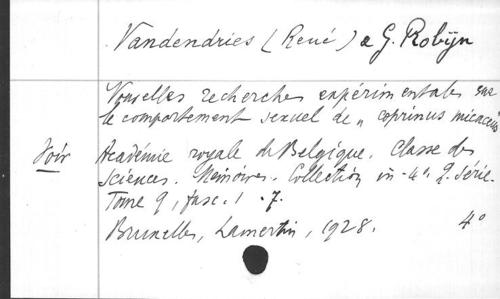 Vandendries (René) & G. Robijn
Nouvelles recherches expérimentales sur
le comportement sexuel de „ coprinus micaceus
Voir Académie royale de Belgique. Classe des
Sciences. Mémoires. Collection in-4°. 2. Série.
Tome 9, fasc. 1 . 7.
Bruxelles, Lamertin, 1928. 4°